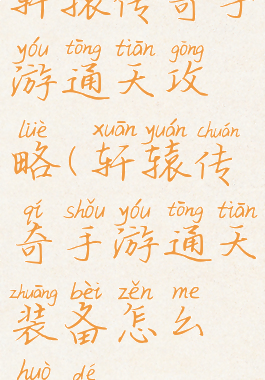 轩辕传奇手
yóu tōng tiān gōng
游通天攻
lüè xuān yuán chuán
略(轩辕传
qí shǒu yóu tōng tiān
奇手游通天
zhuāng bèi zěn me
装备怎么
huò dé